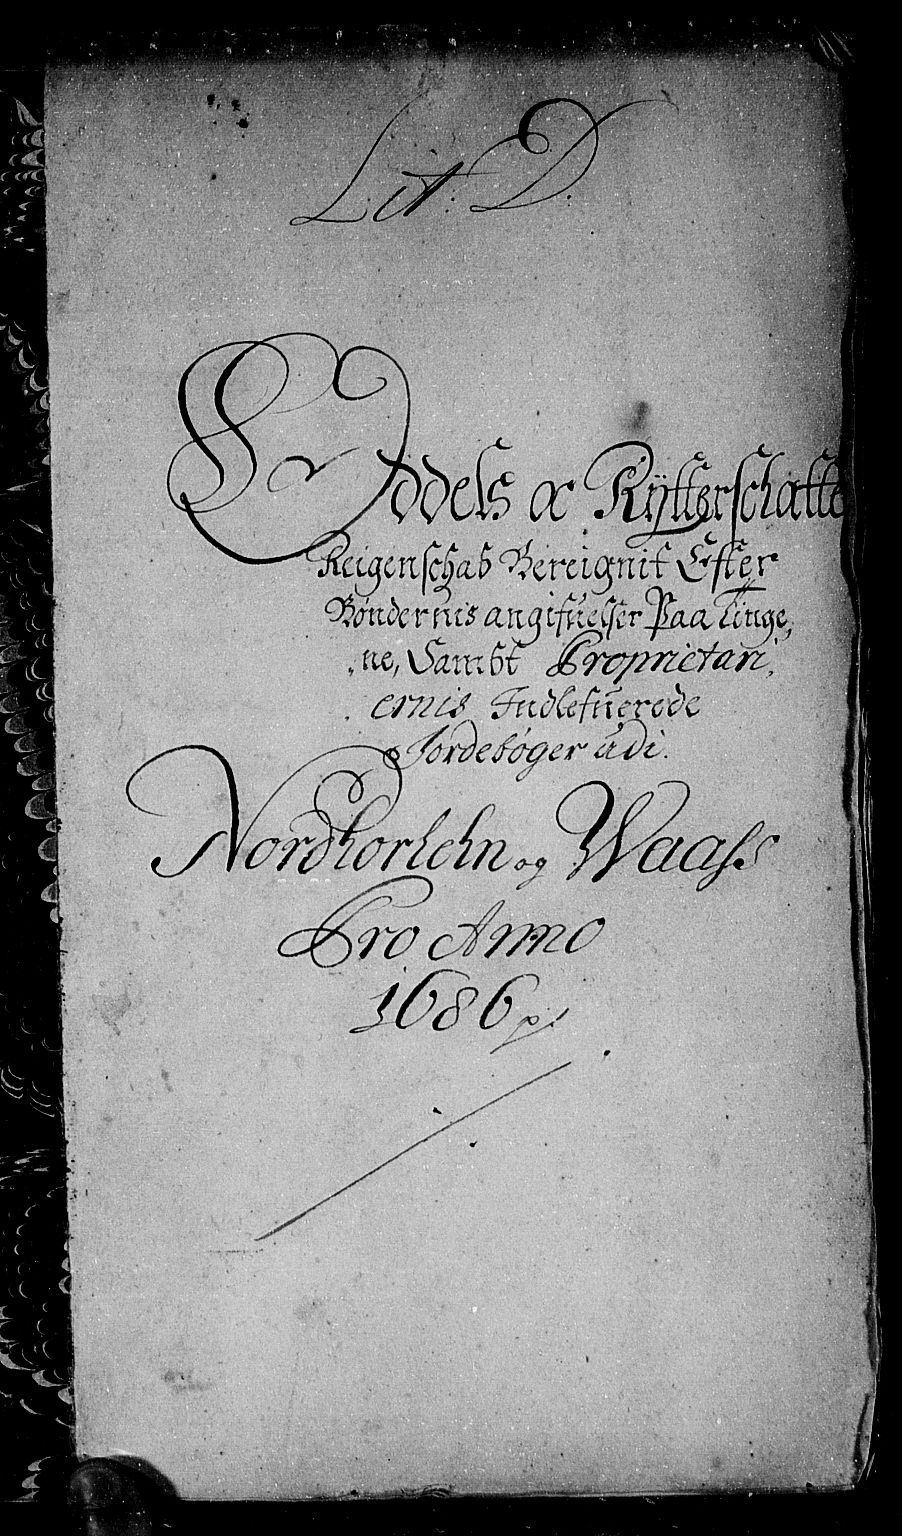 Lit: D:
Oddels oc Rytterschatte
Reigenschab Bereignit Efter
Bøndernis angifuelser Paa Tinge,
,ne, Sambt Proprietari,
ernis Indlefuerede
Jordebøger udi.
Nordhorlehn og Waass
Pro Anno
1686